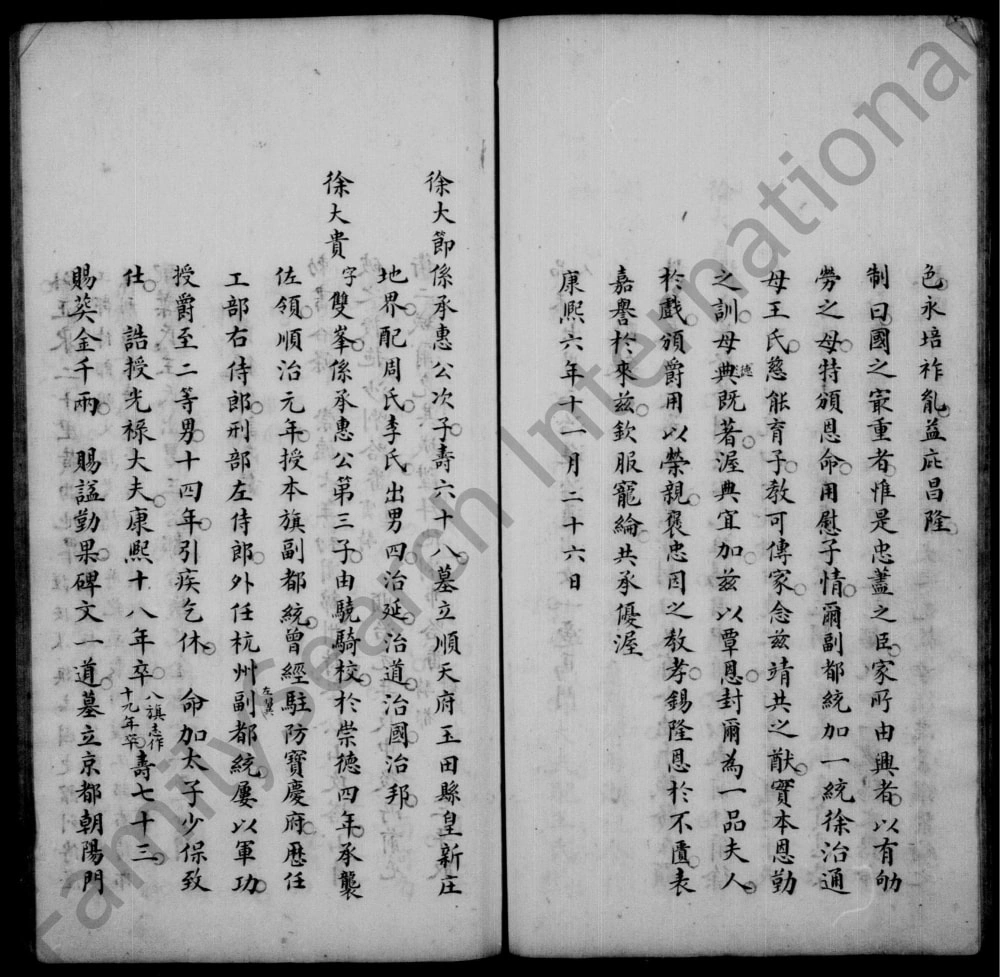 色永培祚胤益庇昌隆
制曰國之寂重者惟是忠藎之臣家所由興者以有劬
勞之母特頒恩命用慰子情爾副都統加一統徐治通
母王氏慈能育子教可傳家念茲靖共之猷實本恩勤
之訓母典德既著渥典宜加茲以覃恩封爾為一品夫人
於戲頒爵用以榮親褒忠因之教孝錫隆恩於不匱表
嘉譽於來茲欽服寵綸共承優渥
康熙六年十一月二十六日
徐大節係承惠公次子壽六十八墓立順天府玉田縣皇新庄
地界配周氏李氏出男四治延治道治國治邦
徐大貴字雙峯係承惠公第三子由驍騎校於崇德四年承襲
佐領順治元年授本旗副都統曾經駐防寶慶府歷任
工部右侍郎刑部左侍郎外任杭州左翼副都統屢以軍功
授爵至二等男十四年引疾乞休 命加太子少保致
仕 誥授光祿大夫康熙十八年卒八旗志作十九年卒壽七十三
賜葬金千兩 賜謚勤果碑文一道墓立京都朝陽門
FamilySearch International